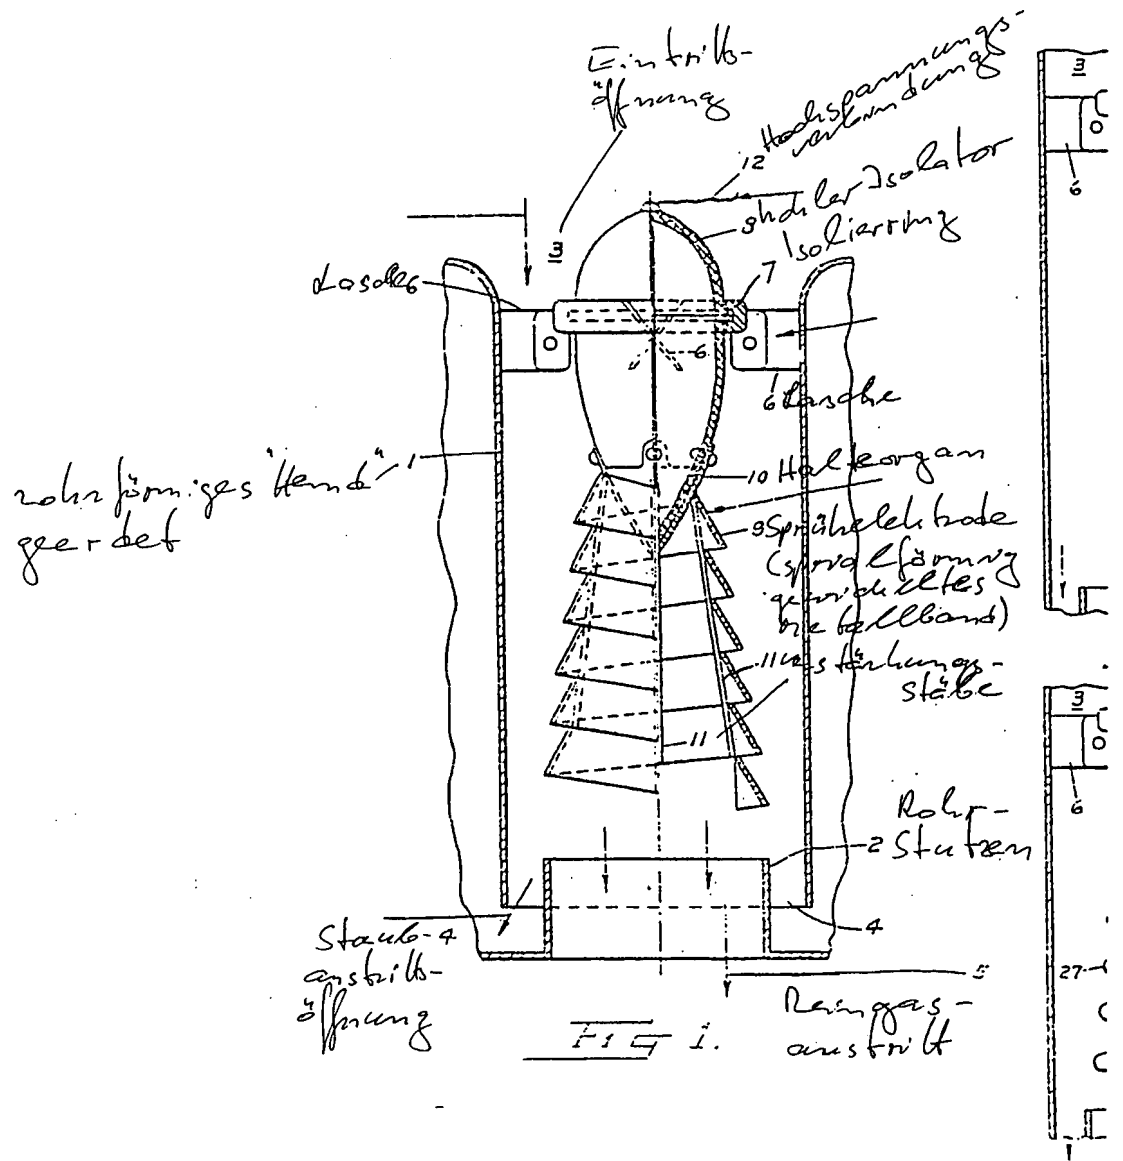 Eintritts-
öffnung
Hochspannungs-
verbindung
12
3
8 hohler Isolator
Isolierring
7
3
6
Lasche 6
6
6 Lasche
rohrförmiges "Hemd" 1
geerdet
10 Halteorgan
9 Sprühelektrode
(spiralförmig
gewickeltes
Metallband)
11 Verstärkungs-
stäbe
11
3
6
Rohr-
2 Stutzen
Staub- 4
austritts-
öffnung
4
5
27
Reingas-
austritt
FIG 1.